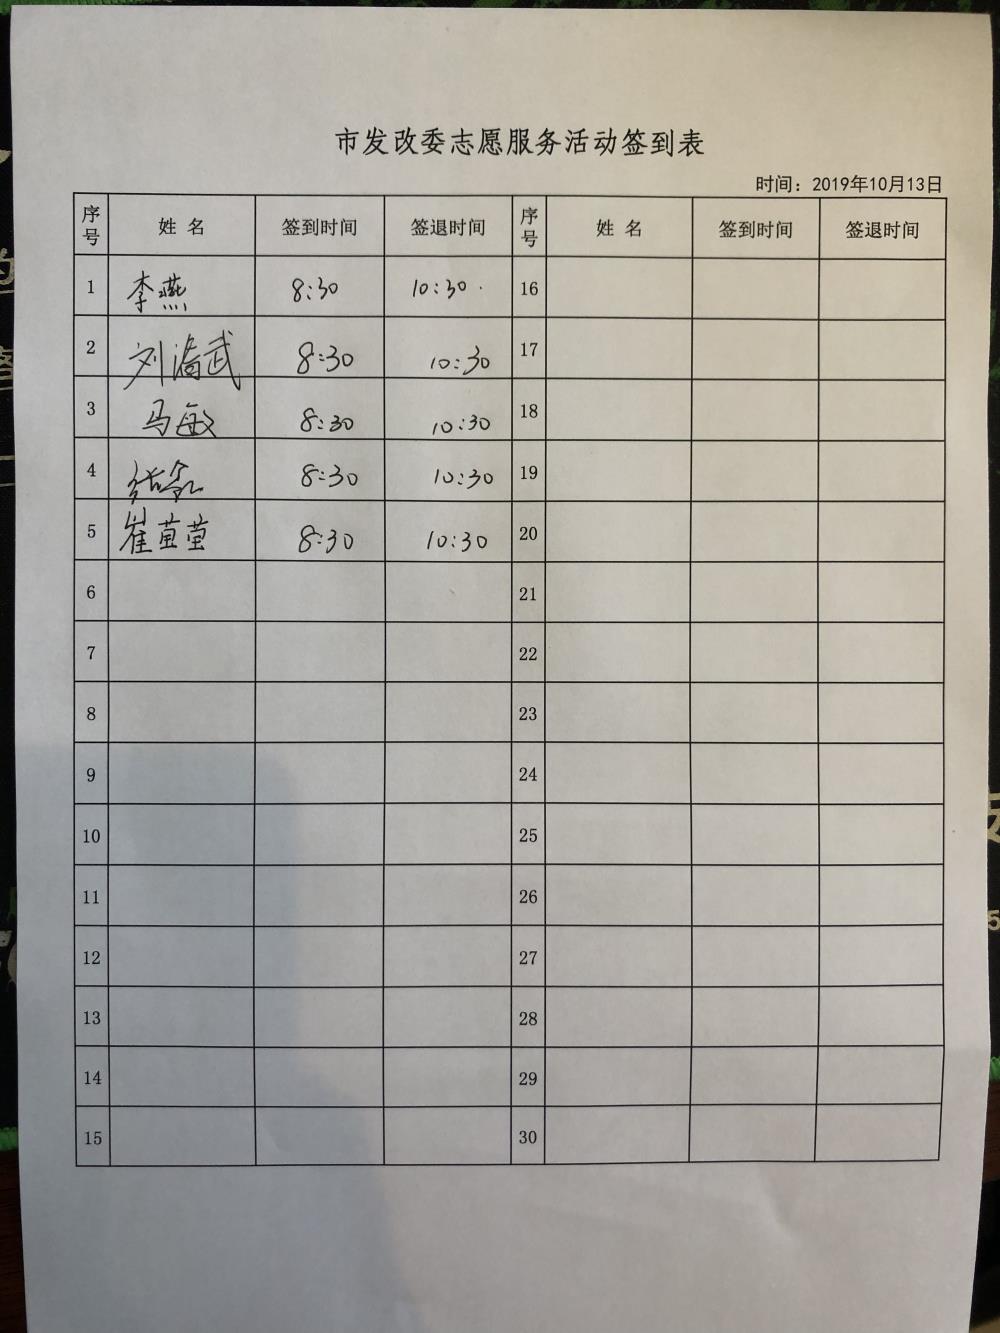 市发改委志愿服务活动签到表
时间：2019年10月13日
序号 姓 名 签到时间 签退时间 序号 姓 名 签到时间 签退时间
1 李燕 8:30 10:30 16
2 刘 武 8:30 10:30 17
3 马敏 8:30 10:30 18
4 张 8:30 10:30 19
5 崔萤萤 8:30 10:30 20
6 21
7 22
8 23
9 24
10 25
11 26
12 27
13 28
14 29
15 30